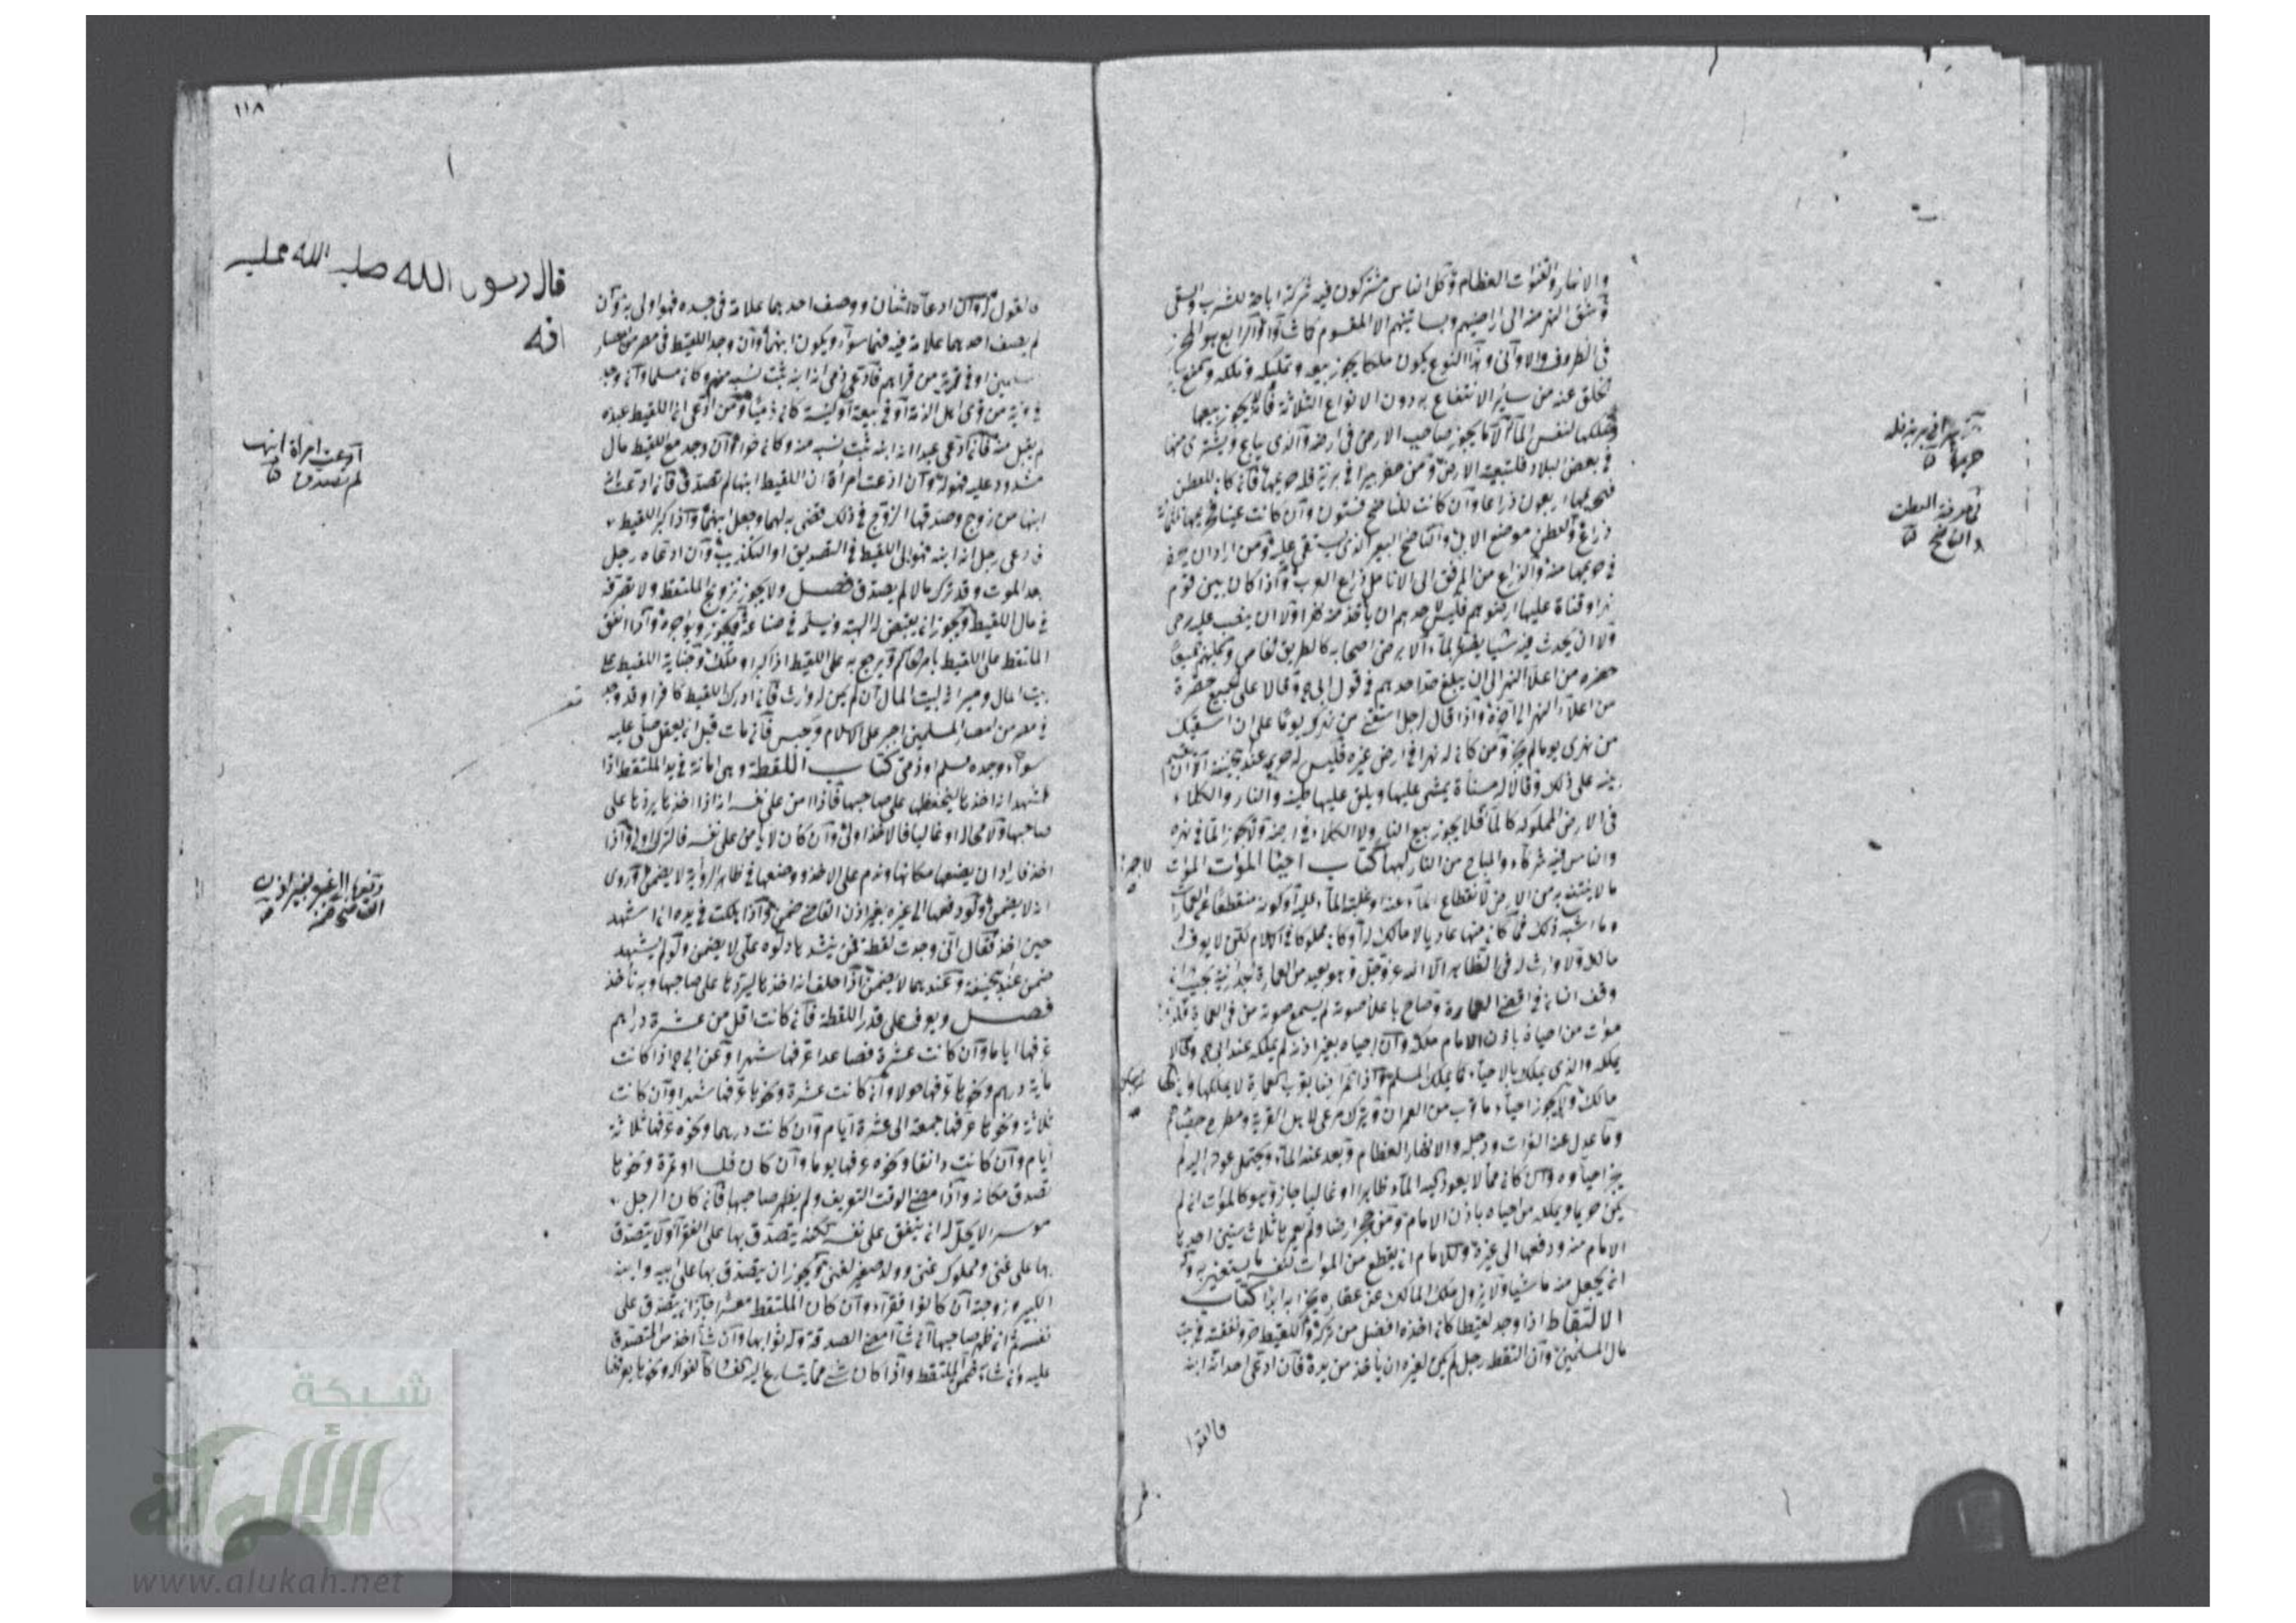 والانهار والقنوات العظام وكل الناس مشتركون فيه شركة اباحة للشرب والسقي
وشق النهر منه الى اراضيهم وبساتينهم الا المقسوم والرابع هو المحرز
في الظروف والاواني وهذا النوع يكون ملكا يجوز بيعه وتمليكه
عنه من سائر الانتفاع به دون الانواع الثلاثة فانه لا يجوز بيعها
لنفس الماء صاحب الارض في ارضه والذي يباع ويشترى منها
في بعض البلاد فلتبعية الارض ومن حفر بيرا في برية فله حريمها فان كان للعطن
فحريمها اربعون ذراعا وان كانت للناضح فستون وان كانت عينا فحريمها
ذراع والعطن موضع الابل والناضح البعير الذي يستقى عليه ومن اراد ان يحفر
في حريمها منع والذراع من المرفق الى الانامل ذراع العرب واذا كان بين قوم
نهر او قناة عليها ارضوهم فليس لاحدهم ان ياخذ منه نهرا ولا ان ينصب عليه رحى
ولا ان يحدث فيه شيا يضر بالماء الا برضى اصحابه كالطريق الخاص
حفره من اعلا النهر الى ان يبلغ حد احدهم في قول ابي ح وقالا على الجميع حفره
من اعلا النهر الى آخره واذا قال رجل اسقني من نهرك يوما على ان اسقيك
من نهري يوما لم يجز ومن كان له نهر في ارض غيره فليس له حريم عند ابي حنيفة الا ان يقيم
بينة على ذلك وقالا له مسناة يمشي عليها ويلقي عليها طينه والنار والكلاء
في الارض المملوكة كالماء فلا يجوز بيع النار ولا الكلاء في ارضه
والناس فيه شركاء والمباح من النار لهبها كتاب احياء الموات الموات
ما لا ينتفع به من الارض لانقطاع الماء عنه او غلبة الماء عليه او كونه منقطعا عن العمارة
وما اشبه ذلك فما كان منها عاديا لا مالك له او كان مملوكا في الاسلام لكن لا يعرف له
مالك ولا وارث له في الظاهر الا الله عز وجل وهو بعيد من العمارة بحيث اذا
وقف انسان في اقصى العمارة وصاح باعلا صوته لم يسمع صوته من في العمارة
موات من احياه باذن الامام ملكه وان احياه بغير اذنه لم يملكه عند ابي ح وقالا
يملكه والذمي يملك بالاحياء كما يملك المسلم
مالك ولا يجوز احياء ما قرب من العمران ويترك مرعى لاهل القرية ومطرح
وما عدل عنه الفرات ودجلة والانهار العظام وبعد عنه الماء ويحتمل عوده اليه لم
يجز احياؤه وان كان مما لا يعود اليه الماء ظاهرا او غالبا جاز وهو كالموات اذا لم
يكن حريما ويملكه من احياه باذن الامام ومن حجر ارضا ولم يعمرها ثلاث سنين اخذها
الامام منه ودفعها الى غيره وللامام ان يقطع من الموات
ان يجعل منه ماشيا ولا يزول ملك المالك عن عقاره ابدا كتاب
الالتقاط اذا وجد لقيطا كان اخذه افضل من تركه واللقيط حر ونفقته في بيت
مال المسلمين وان التقطه رجل لم يكن لغيره ان ياخذه من يده فان ادعى احد انه ابنه
فالقول
في معرفة العطن
والناضح
١١٨
قال رسول الله صلى الله عليه
فالقول له وان ادعاه اثنان ووصف احدهما علامة في جسده فهو اولى به وان
لم يصف احدهما علامة فيه فهما سواء ويكون ابنهما وان وجد اللقيط في مصر من امصار
المسلمين او في قرية من قراهم فادعى ذمي انه ابنه ثبت نسبه منه وكان مسلما وان وجد
في قرية من قرى اهل الذمة او في بيعة او كنيسة كان ذميا ومن ادعى ان اللقيط عبده
لم يقبل منه فان ادعى عبد انه ابنه ثبت نسبه منه وكان حرا وان وجد مع اللقيط مال
مشدود عليه فهو له وان ادعت امرأة ان اللقيط ابنها لم تصدق فان ادعت انه
ابنها من زوج وصدقها الزوج في ذلك قضي به لهما وجعل ابنهما واذا كبر اللقيط
فادعى رجل انه ابنه فهو الى اللقيط في التصديق او التكذيب وان ادعاه رجل
بعد الموت وقد ترك مالا لم يصدق فصل ولا يجوز تزويج الملتقط ولا تصرفه
في مال اللقيط ويجوز ان يقبض له الهبة ويسلمه في صناعة ويؤاجره واذا انفق
الملتقط على اللقيط بامر الحاكم يرجع به على اللقيط اذا كبر وجناية اللقيط على
بيت المال وميراثه لبيت المال ان لم يكن له وارث فان ادرك اللقيط كافرا وقد وجد
في مصر من امصار المسلمين اجبر على الاسلام وحبس فان مات قبل ان يعقل صلي عليه
سواء وجده مسلم او ذمي كتاب اللقطة وهي امانة في يد الملتقط اذا
اشهد انه اخذها ليحفظها على صاحبها فاذا امن على نفسه انه اذا اخذها يردها على
صاحبها لا محالة او غالبا فالاخذ اولى وان كان لا يأمن على نفسه فالترك اولى واذا
اخذ فاراد ان يضعها مكانها وندم على الاخذ ووضعها في ظاهر الرواية لا يضمن وروي
انه لا يضمن ولو دفعها الى غيره بغير اذن القاضي ضمن واذا هلكت في يده ان اشهد
حين اخذ فقال اني وجدت لقطة فمن ينشدها دلوه علي لا يضمن ولو لم يشهد
ضمن عند ابي حنيفة وعندهما لا يضمن اذا حلف انه اخذها ليردها على صاحبها وبه ناخذ
فصل ويعرف على قدر اللقطة فان كانت اقل من عشرة دراهم
عرفها اياما وان كانت عشرة فصاعدا عرفها شهرا وعن ابي ح اذا كانت
ماية درهم ونحوها عرفها حولا وان كانت عشرة ونحوها عرفها شهرا وان كانت
ثلاثة ونحوها عرفها جمعة الى عشرة ايام وان كانت درهما ونحوه عرفها ثلاثة
ايام وان كانت دانقا ونحوه عرفها يوما وان كان فلسا او تمرة ونحوها
تصدق مكانه واذا مضى الوقت التعريف ولم يظهر صاحبها فان كان الرجل
موسرا لا يحل له ان ينفق على نفسه لكنه يتصدق بها على الفقراء ولا يتصدق
بها على غني ومملوك غني وولد صغير لغني ويجوز ان يتصدق بها على ابيه وابنه
الكبير وزوجته ان كانوا فقراء وان كان الملتقط معسرا جاز ان يتصدق على
نفسه ثم ان ظهر صاحبها ان شاء امضى الصدقة وله ثوابها وان شاء اخذ من المتصدق
عليه وان شاء ضمن الملتقط واذا كان شيء مما يتسارع اليه الفساد كالفواكه ونحوها يعرفها
ادعت امرأة ابنها
لم تصدق
دفعها الى غيره بغير اذن
القاضي ضمن
شبكة
الألوكة
www.alukah.net